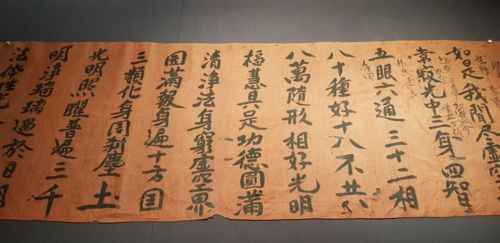 如是我聞尽虚
常寂光中三身四智
五眼六通三十二相
八十種好十八不共
八萬随形相好光明
福慧具足功德圓滿
清浄法身窮虚空界
圓滿報身遍十方国
三類化身周刹塵土
光明照曜普遍三千
明浄瑠璃過於日月
法体性光